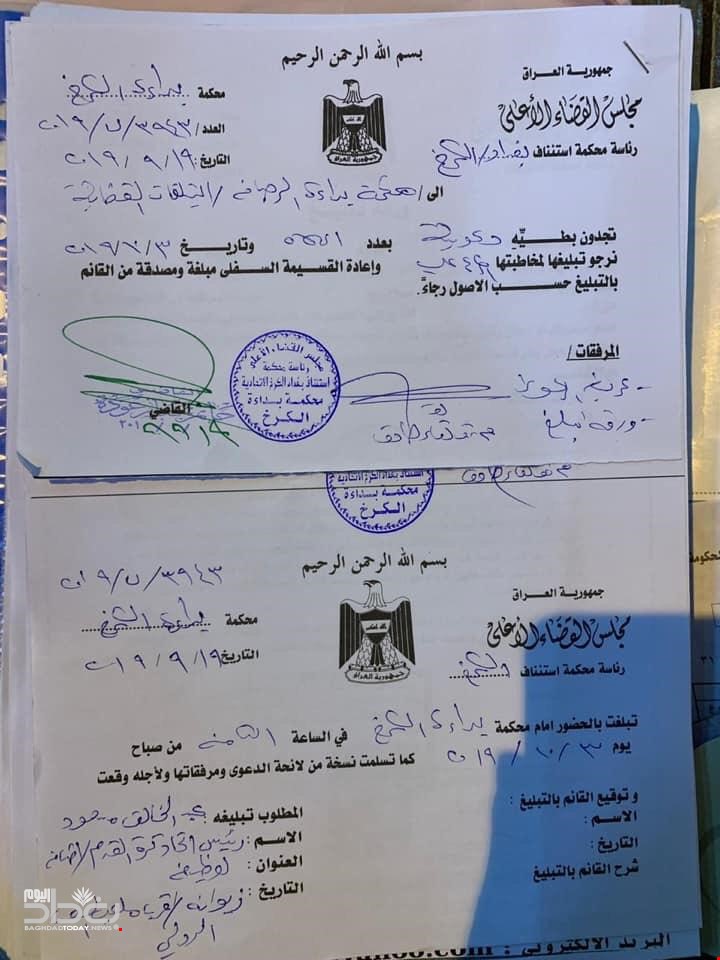 بسم الله الرحمن الرحيم
جمهورية العراق
مجلس القضاء الأعلى
رئاسة محكمة استئناف بغداد/الكرخ
محكمة بداءة الكرخ
العدد/ ٣٩٤٣/ب/٢٠١٩
التاريخ: ١٩/٩/٢٠١٩
الى/محكمة بداءة الرصافة/التبليغات القضائية
تجدون بطيّه بعدد وتاريخ ٣/١٠/٢٠١٩
نرجو تبليغها لمخاطبتها وإعادة القسيمة السفلى مبلغة ومصدقة من القائم
بالتبليغ حسب الاصول رجاءً.
المرفقات/
- عريضة الدعوى
- ورقة تبليغ
القاضي
القاضي
مجلس القضاء الأعلى
رئاسة محكمة
استئناف بغداد الكرخ الاتحادية
محكمة بداءة
الكرخ
استئناف بغداد الكرخ الاتحادية
محكمة بداءة
الكرخ
بسم الله الرحمن الرحيم
٣٩٤٣/ب/٢٠١٩
جمهورية العراق
مجلس القضاء الأعلى
رئاسة محكمة استئناف الكرخ
محكمة بداءة الكرخ
التاريخ ١٩/٩/٢٠١٩
تبلغت بالحضور امام محكمة بداءة الكرخ في الساعة الثامنة من صباح
يوم ٣/١٠/٢٠١٩ كما تسلمت نسخة من لائحة الدعوى ومرفقاتها ولأجله وقعت
و توقيع القائم بالتبليغ :
الاسم :
التاريخ :
شرح القائم بالتبليغ
المطلوب تبليغه عبد الخالق مسعود
الاسم : رئيس اتحاد كرة القدم/اضافة
العنوان : لوظيفته
التاريخ : زيونة/قرب ملعب
الدولي
بغداد اليوم
BAGHDADTODAY.NEWS
البريد الالكتروني :
الحكومة